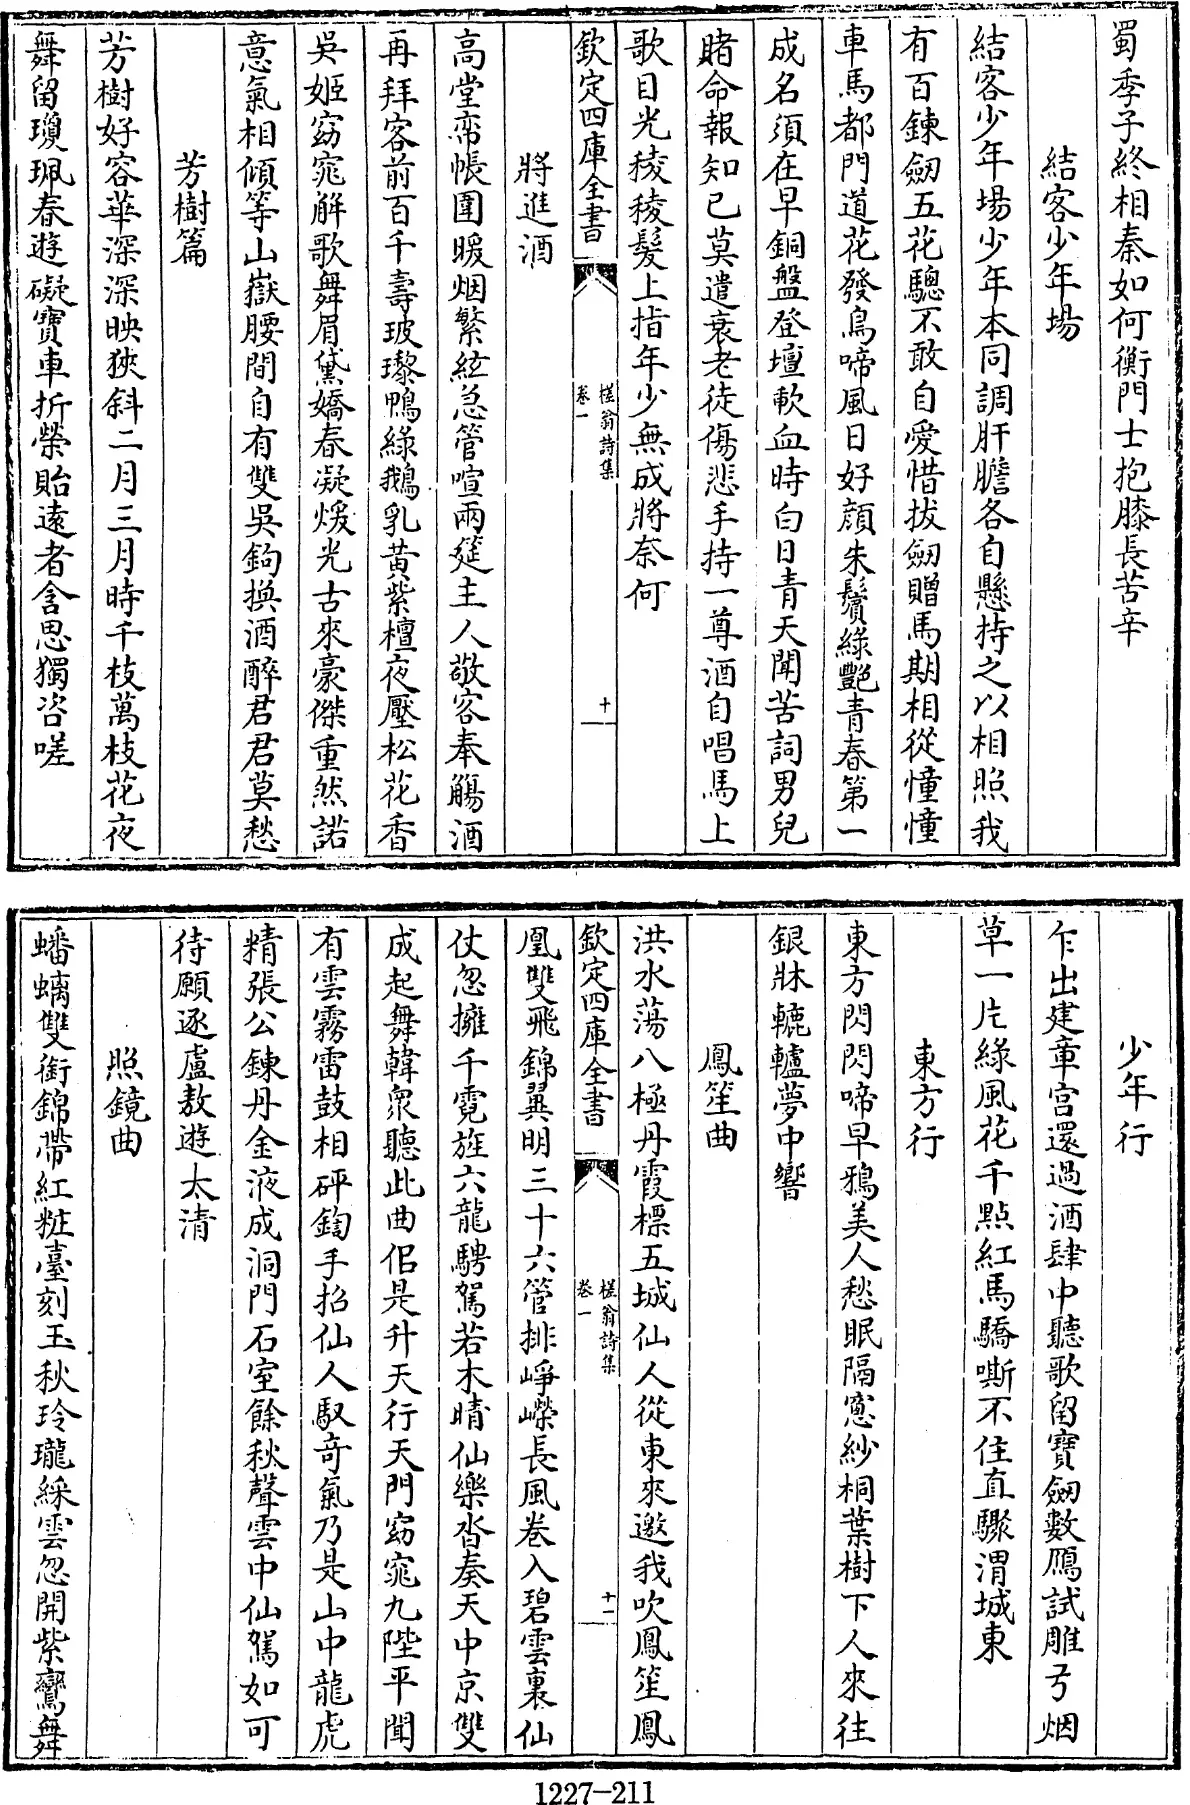 蜀季子終相秦如何衡門士抱膝長苦辛
結客少年場
結客少年場少年本同調肝膽各自懸持之以相照我
有百鍊劒五花驄不敢自愛惜拔劒贈馬期相從憧憧
車馬都門道花發鳥啼風日好顔朱鬢綠艷青春第一
成名須在早銅盤登壇歃血時白日青天聞苦詞男兒
賭命報知已莫遣衰老徒傷悲手持一尊酒自唱馬上
歌目光稜稜髮上指年少無成將奈何
欽定四庫全書
槎翁詩集
卷一
十
將進酒
高堂帟帳圍暖烟繁絃急管喧兩筵主人敬客奉觴酒
再拜客前百千壽玻瓈鴨綠鵝乳黄紫檀夜壓松花香
吳姬窈窕解歌舞眉黛嬌春凝煖光古來豪傑重然諾
意氣相傾等山嶽腰間自有雙吳鉤換酒醉君君莫愁
芳樹篇
芳樹好容華深深映狹斜二月三月時千枝萬枝花夜
舞留瓊珮春遊礙寶車折榮貽遠者含思獨咨嗟
少年行
乍出建章宫還過酒肆中聽歌留寶劒數鴈試雕弓烟
草一片綠風花千點紅馬驕嘶不住直驟渭城東
東方行
東方閃閃啼早鴉美人愁眠隔窻紗桐葉樹下人來往
銀牀轆轤夢中響
鳳笙曲
洪水蕩八極丹霞標五城仙人從東來邀我吹鳳笙鳳
凰雙飛錦翼明三十六管排崢嶸長風卷入碧雲裏仙
仗忽擁千霓旌六龍騁駕若木晴仙樂沓奏天中京雙
成起舞韓衆聽此曲侣是升天行天門窈窕九陛平聞
有雲霧雷鼓相砰鍧手招仙人馭奇氣乃是山中龍虎
精張公鍊丹金液成洞門石室餘秋聲雲中仙駕如可
待願逐盧敖遊太清
照鏡曲
蟠螭雙銜錦帶紅粧臺刻玉秋玲瓏綵雲忽開紫鸞舞
欽定四庫全書
槎翁詩集
卷一
十一
1227-211